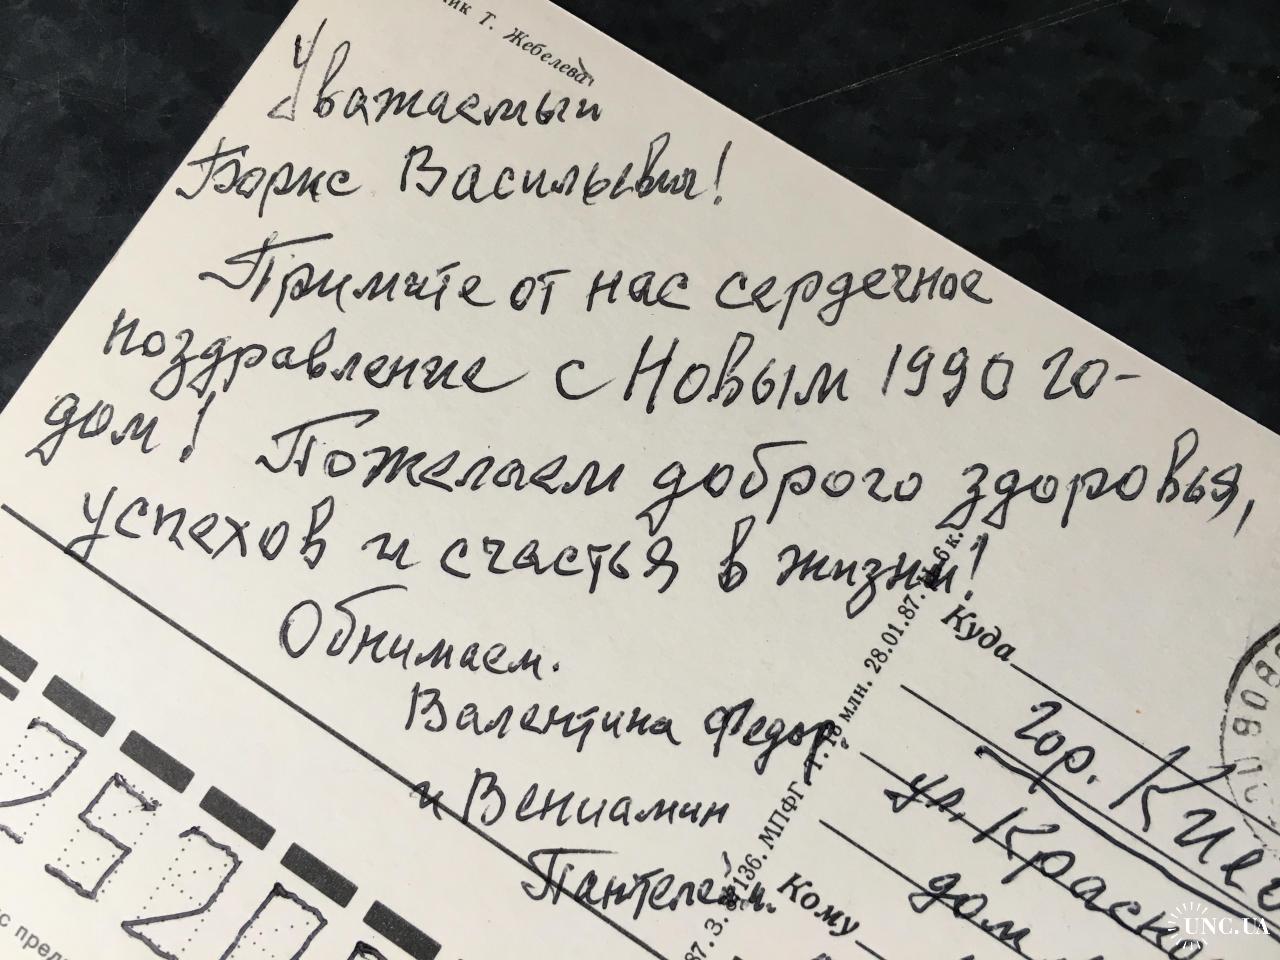 ик Т. Жебелева
Уважаемый
Борис Васильевич!
Примите от нас сердечное
поздравление с Новым 1990 го-
дом! Пожелаем доброго здоровья,
успехов и счастья в жизни!
Обнимаем.
Валентина Федор.
и Вениамин
Пантелейм.
87. 3. 136. МПФГ. Т. 18 млн. 28.01.87. Ц. 6 к.
Куда
гор. Киев
ул. Красно
дом
Кому
2520
с пред
UNC.UA